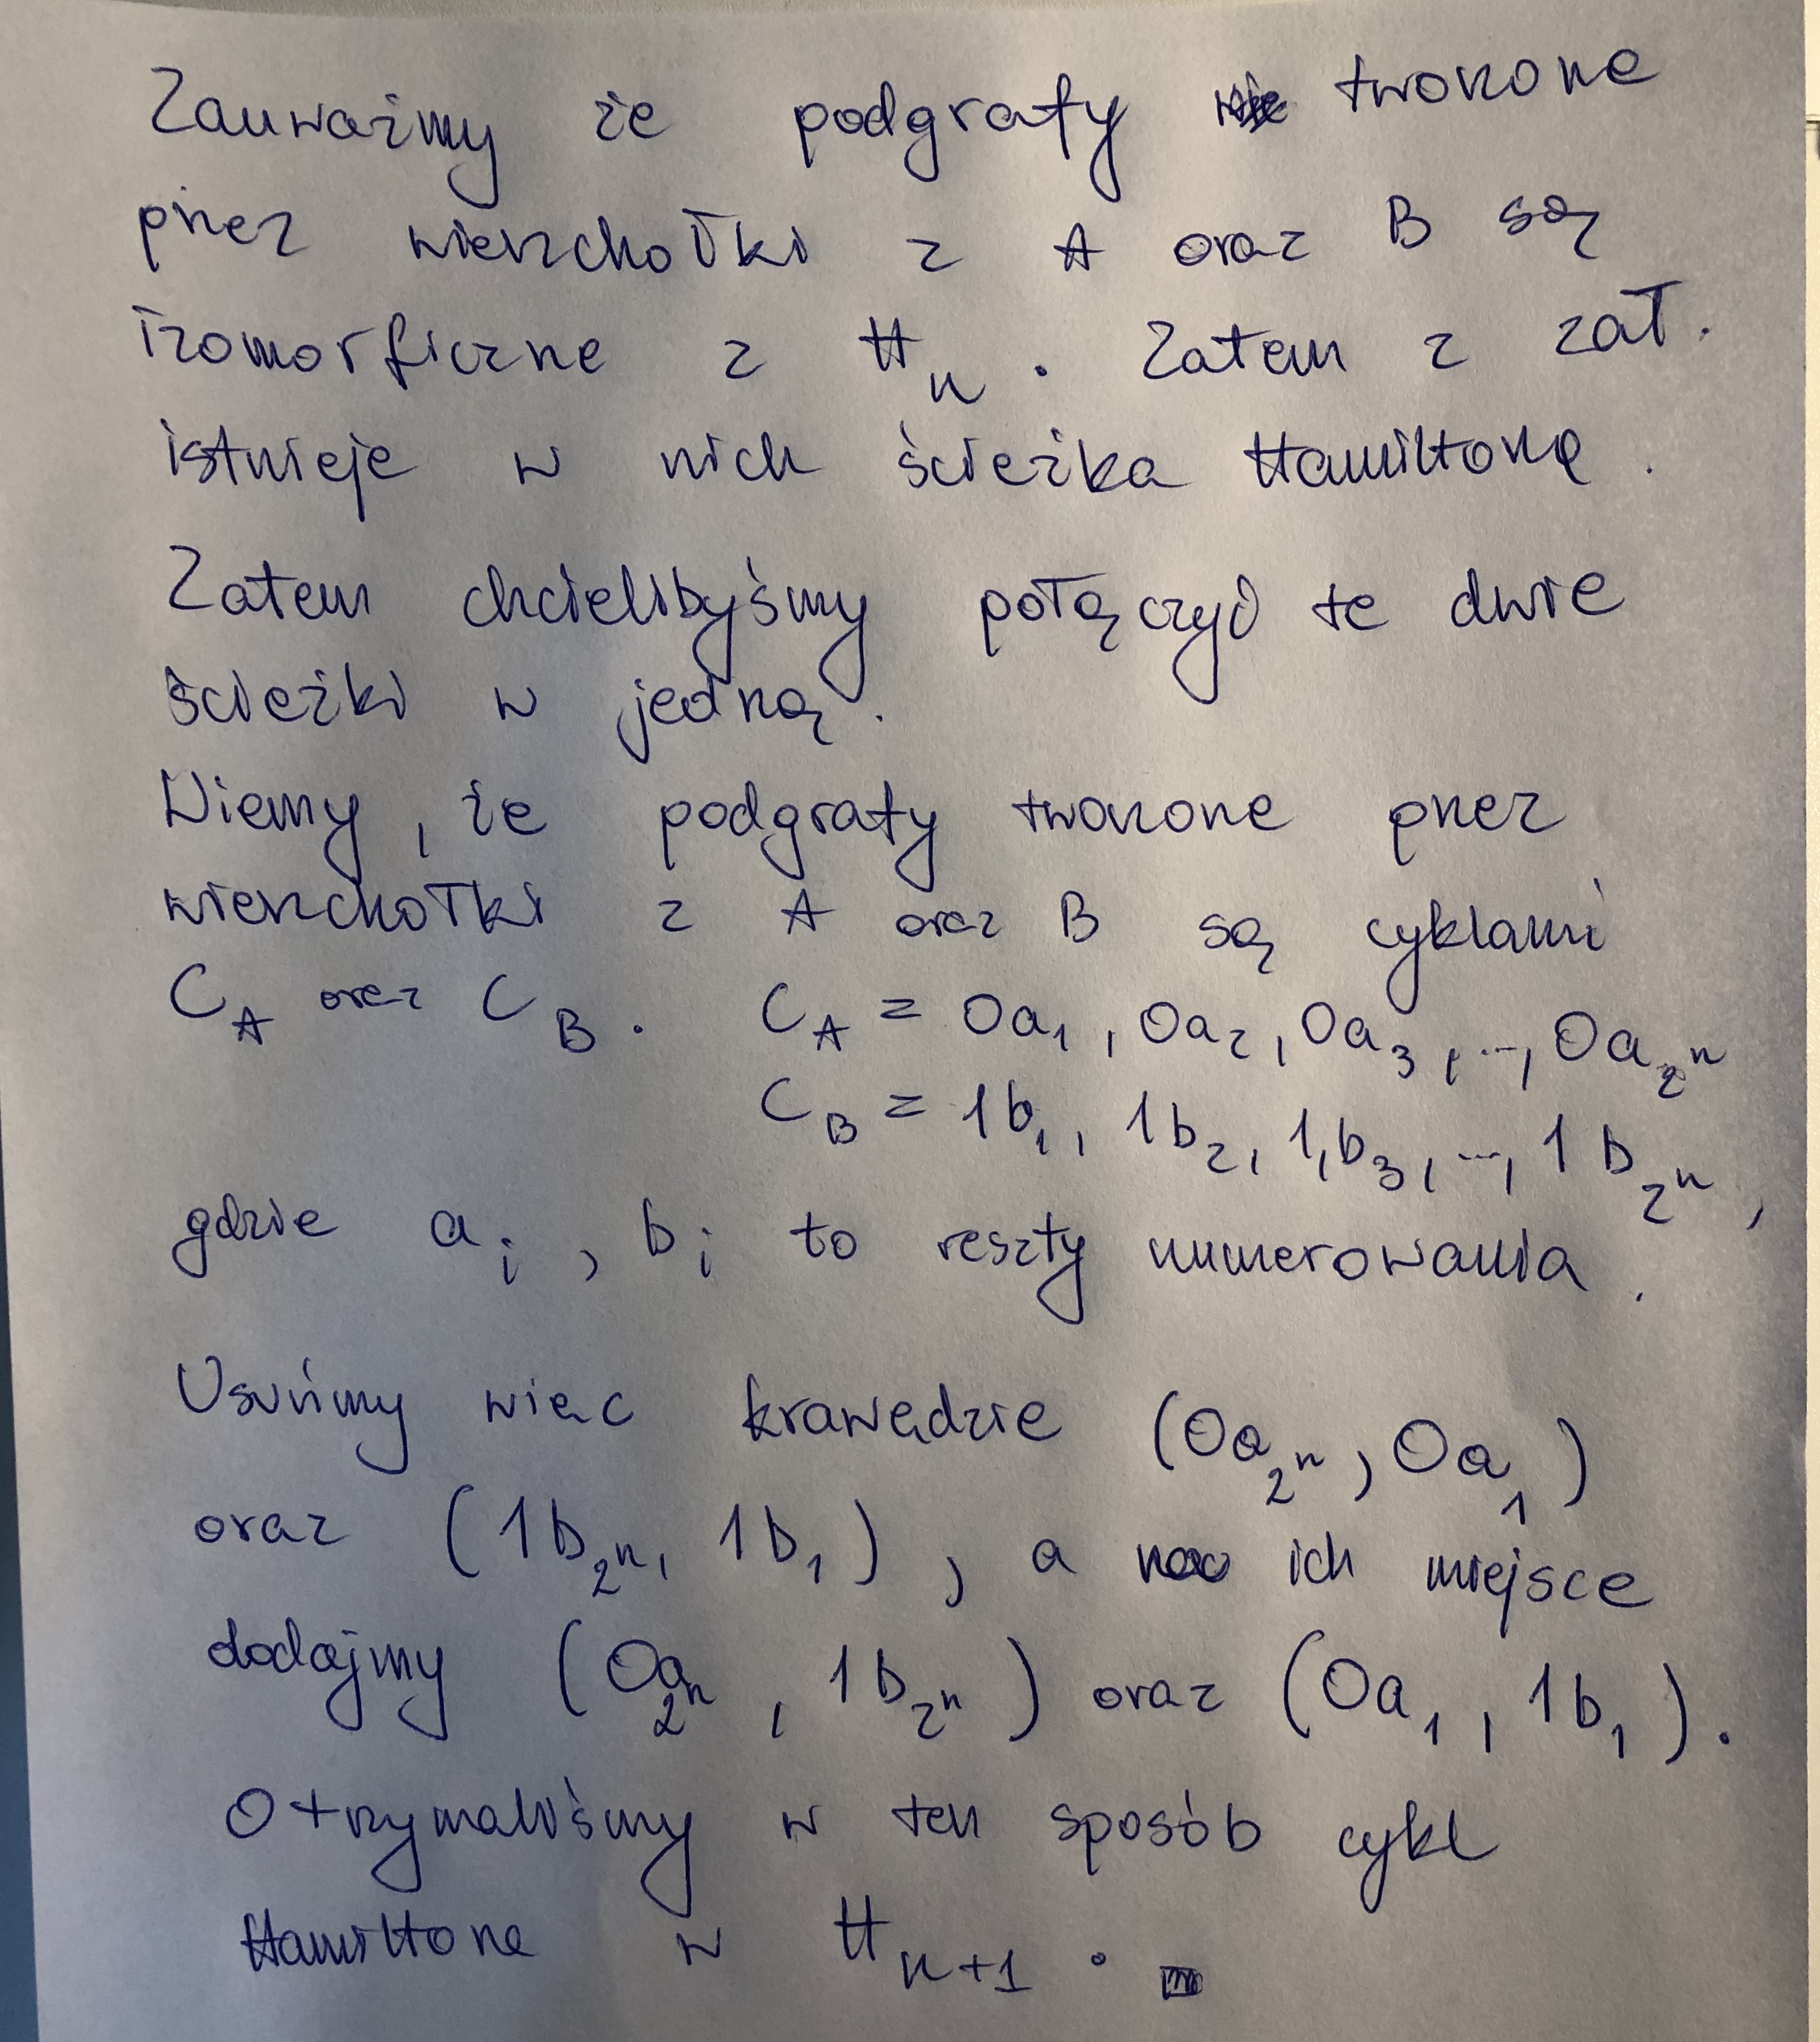 Zauważmy że podgrafy tworzone
przez wierzchołki z A oraz B są
izomorficzne z H_n . Zatem z zał.
istnieje w nich ścieżka Hamiltona .
Zatem chcielibyśmy połączyć te dwie
ścieżki w jedną .
Wiemy , że podgrafy tworzone przez
wierzchołki z A oraz B są cyklami
C_A oraz C_B . C_A = 0a_1 , 0a_2 , 0a_3 , ... , 0a_{2^n}
C_B = 1b_1 , 1b_2 , 1,b_3 , ... , 1b_{2^n} ,
gdzie a_i , b_i to reszty numerowania .
Usuńmy więc krawędzie (0a_{2^n} , 0a_1)
oraz (1b_{2^n} , 1b_1) , a na ich miejsce
dodajmy (0a_{2^n} , 1b_{2^n}) oraz (0a_1 , 1b_1) .
Otrzymaliśmy w ten sposób cykl
Hamiltona w H_{n+1} .